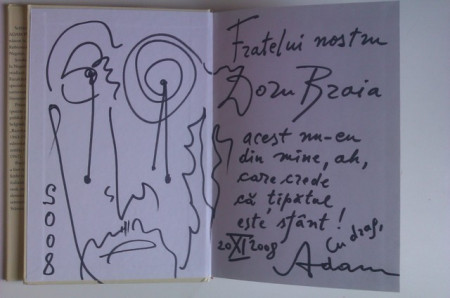 2008
Fratelui nostru
Doru Braia
acest nu-eu
din mine, ah,
care crede
că tipătul
este sfânt!
Cu drag,
20 XI 2008
Adam